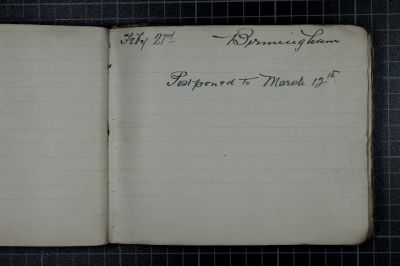 Feby 21st Birmingham
Postponed to March 12th